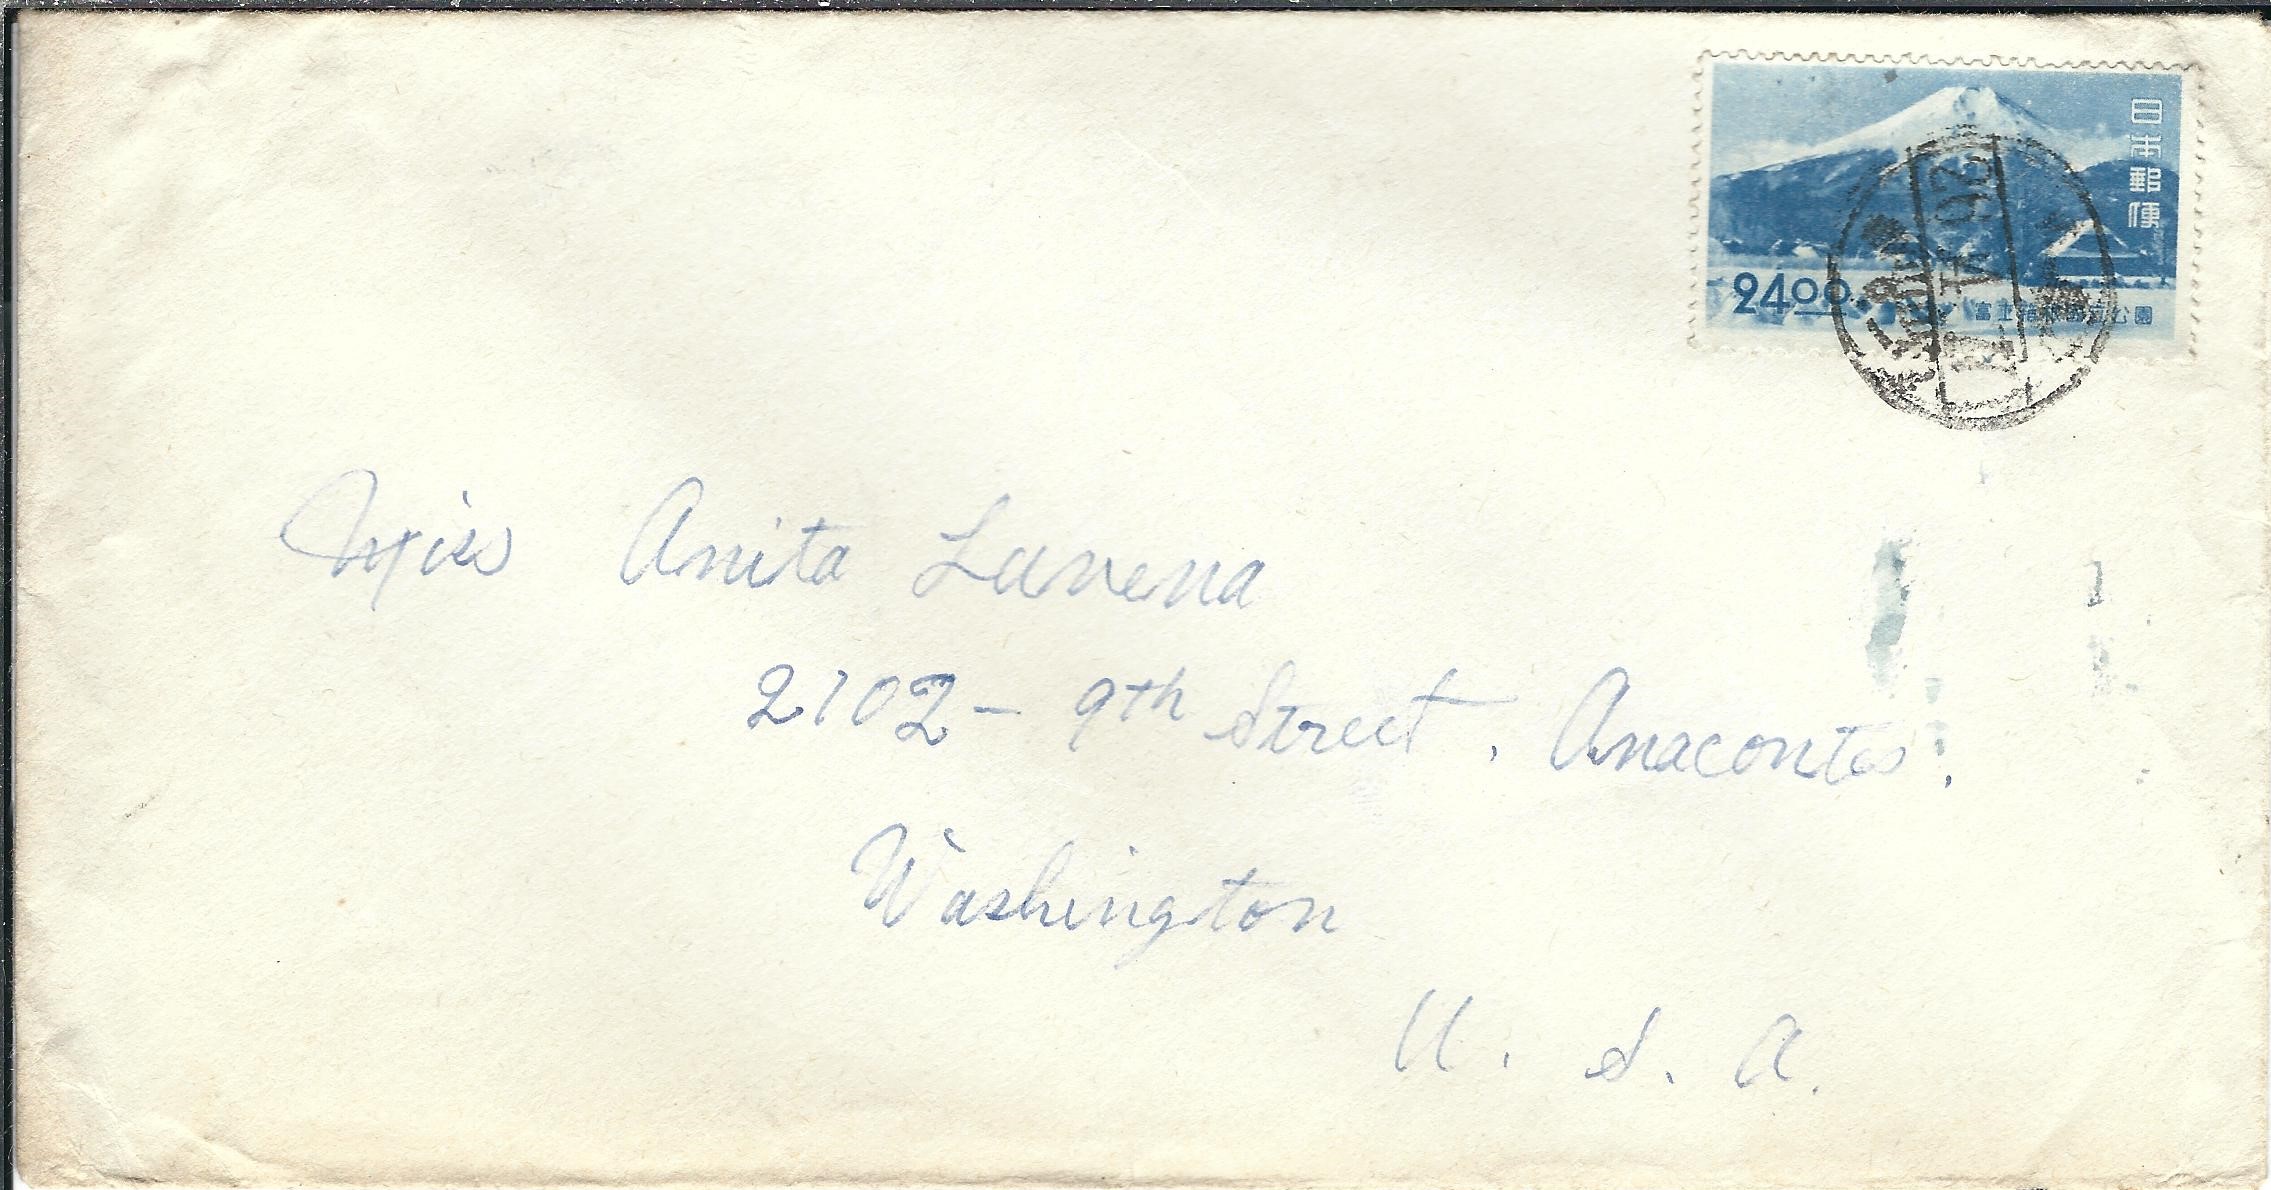 日本郵便
24.00
富士箱根国立公園
26
Miss Anita Lavena
2102 - 9th Street, Anacontes,
Washington
U. S. A.